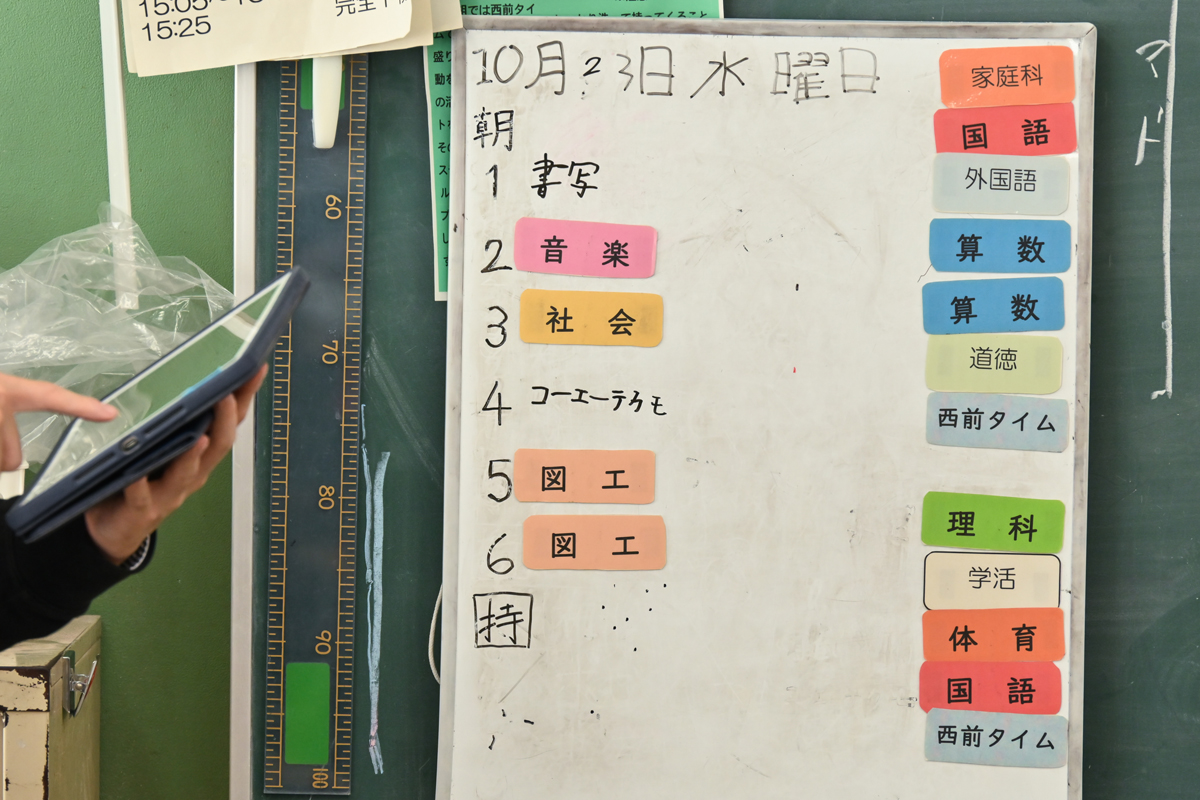 15:25
では西前タイ
って持ってくること
60
70
80
90
100
10月23日水曜日
朝
1 書写
2 音楽
3 社会
4 コーエーテクモ
5 図工
6 図工
持
家庭科
国語
外国語
算数
算数
道徳
西前タイム
理科
学活
体育
国語
西前タイム